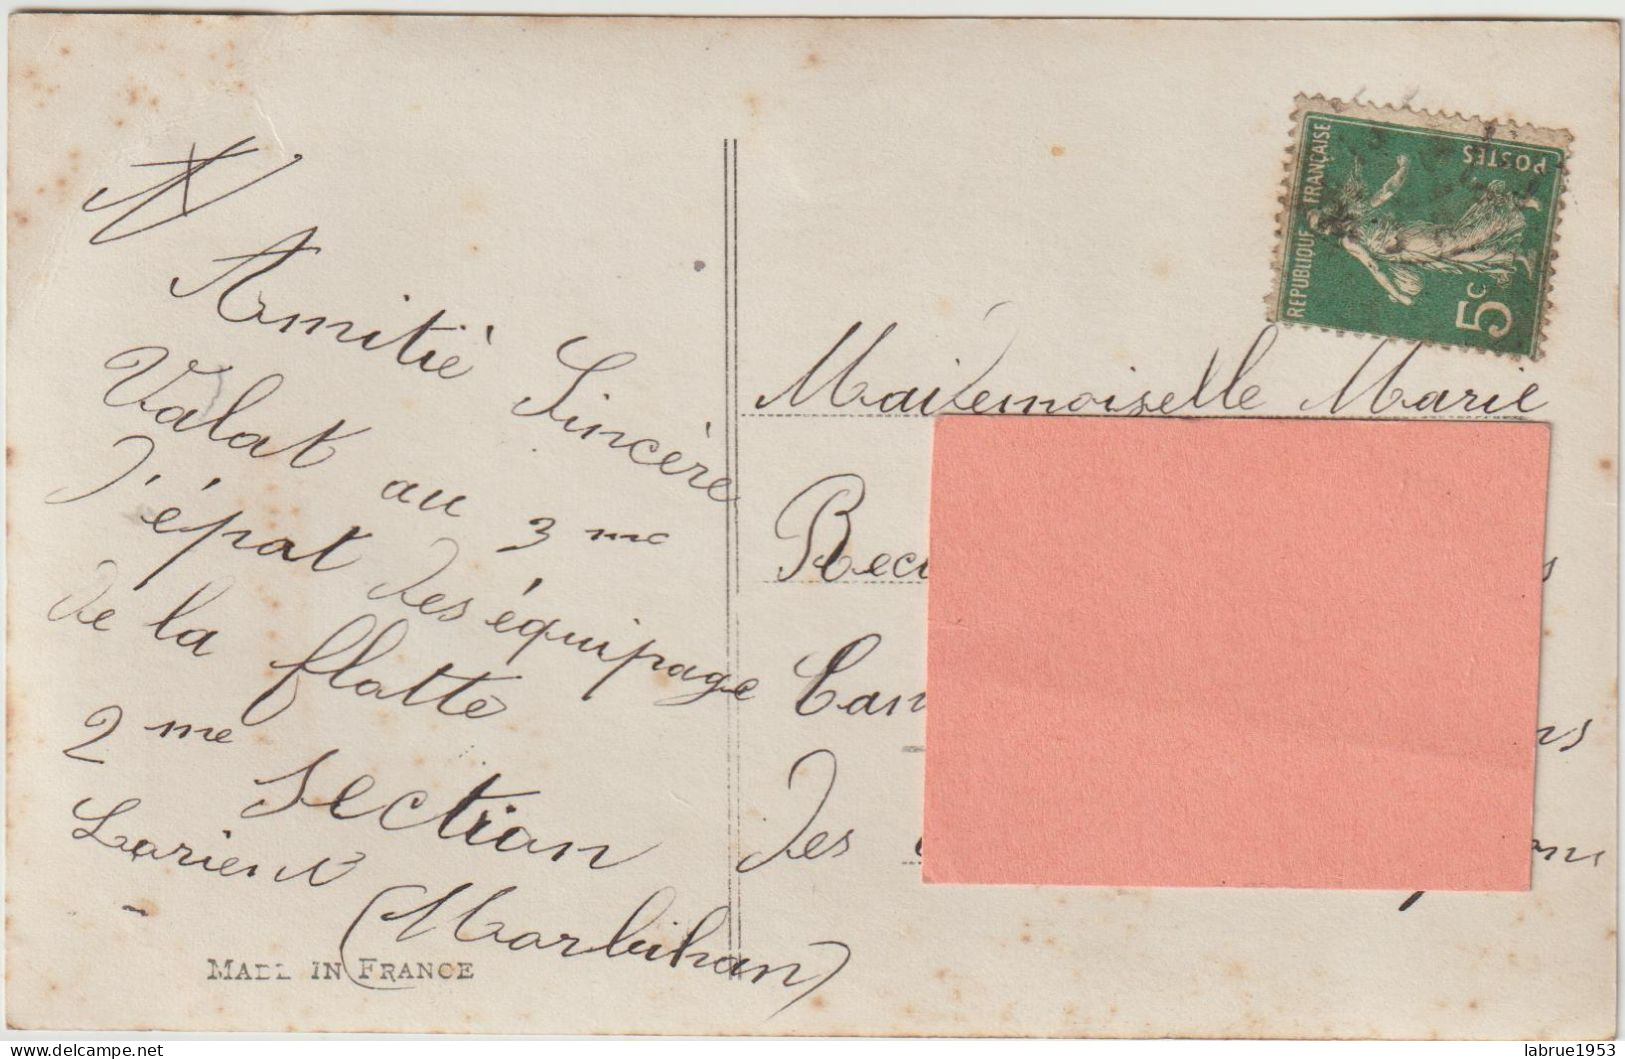 Amitié Sincère
Valat au 3me
dépot des équipage
de la flotte
2me Section
Lorient
(Morbihan)
MADE IN FRANCE
REPUBLIQUE FRANÇAISE
POSTES
5c
Mademoiselle Marie
Rec
Can
des
delcampe.net
labrue1953